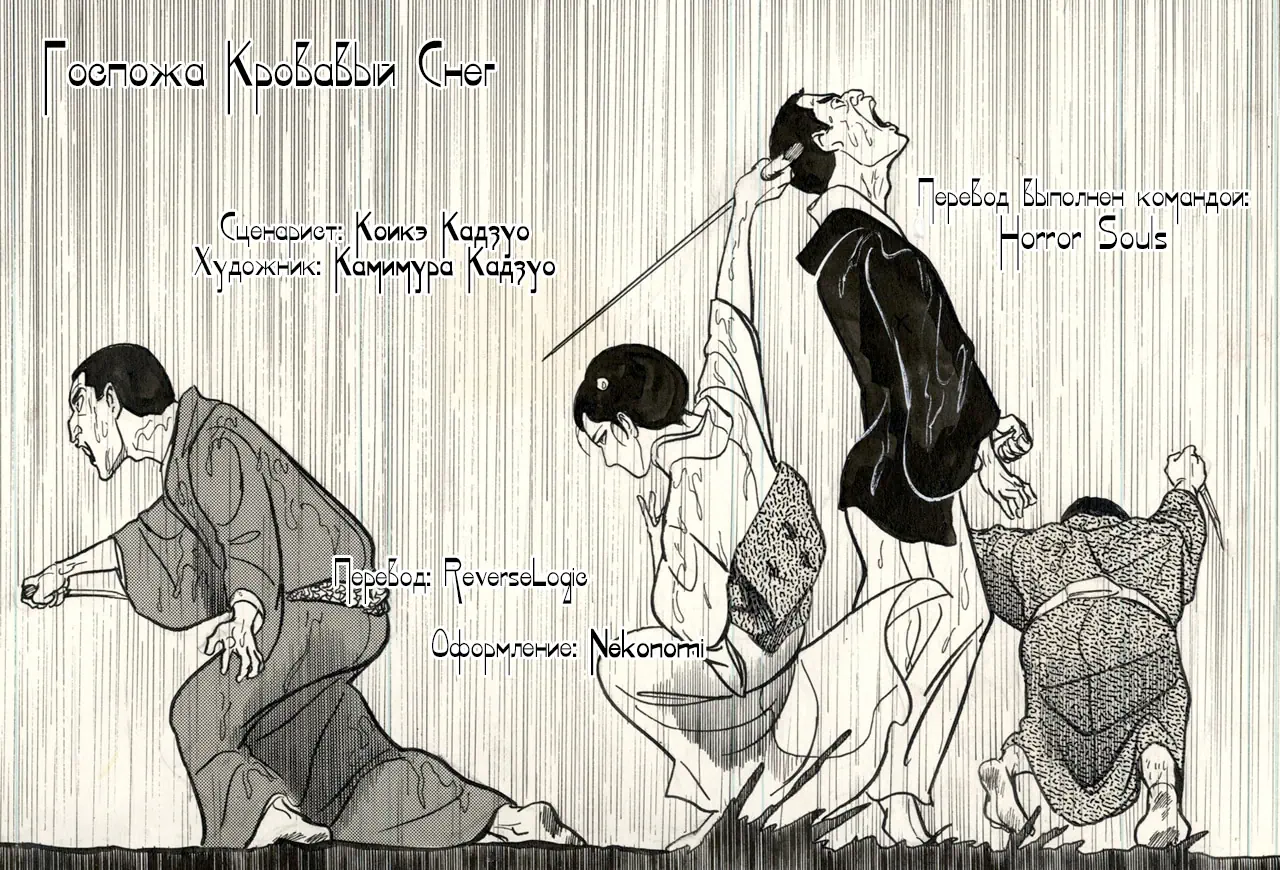 Госпожа Кровавый Снег
Перевод выполнен командой:
Horror Souls
Сценарист: Коикэ Кадзуо
Художник: Камимура Кадзуо
Перевод: ReverseLogic
Оформление: Nekonomi